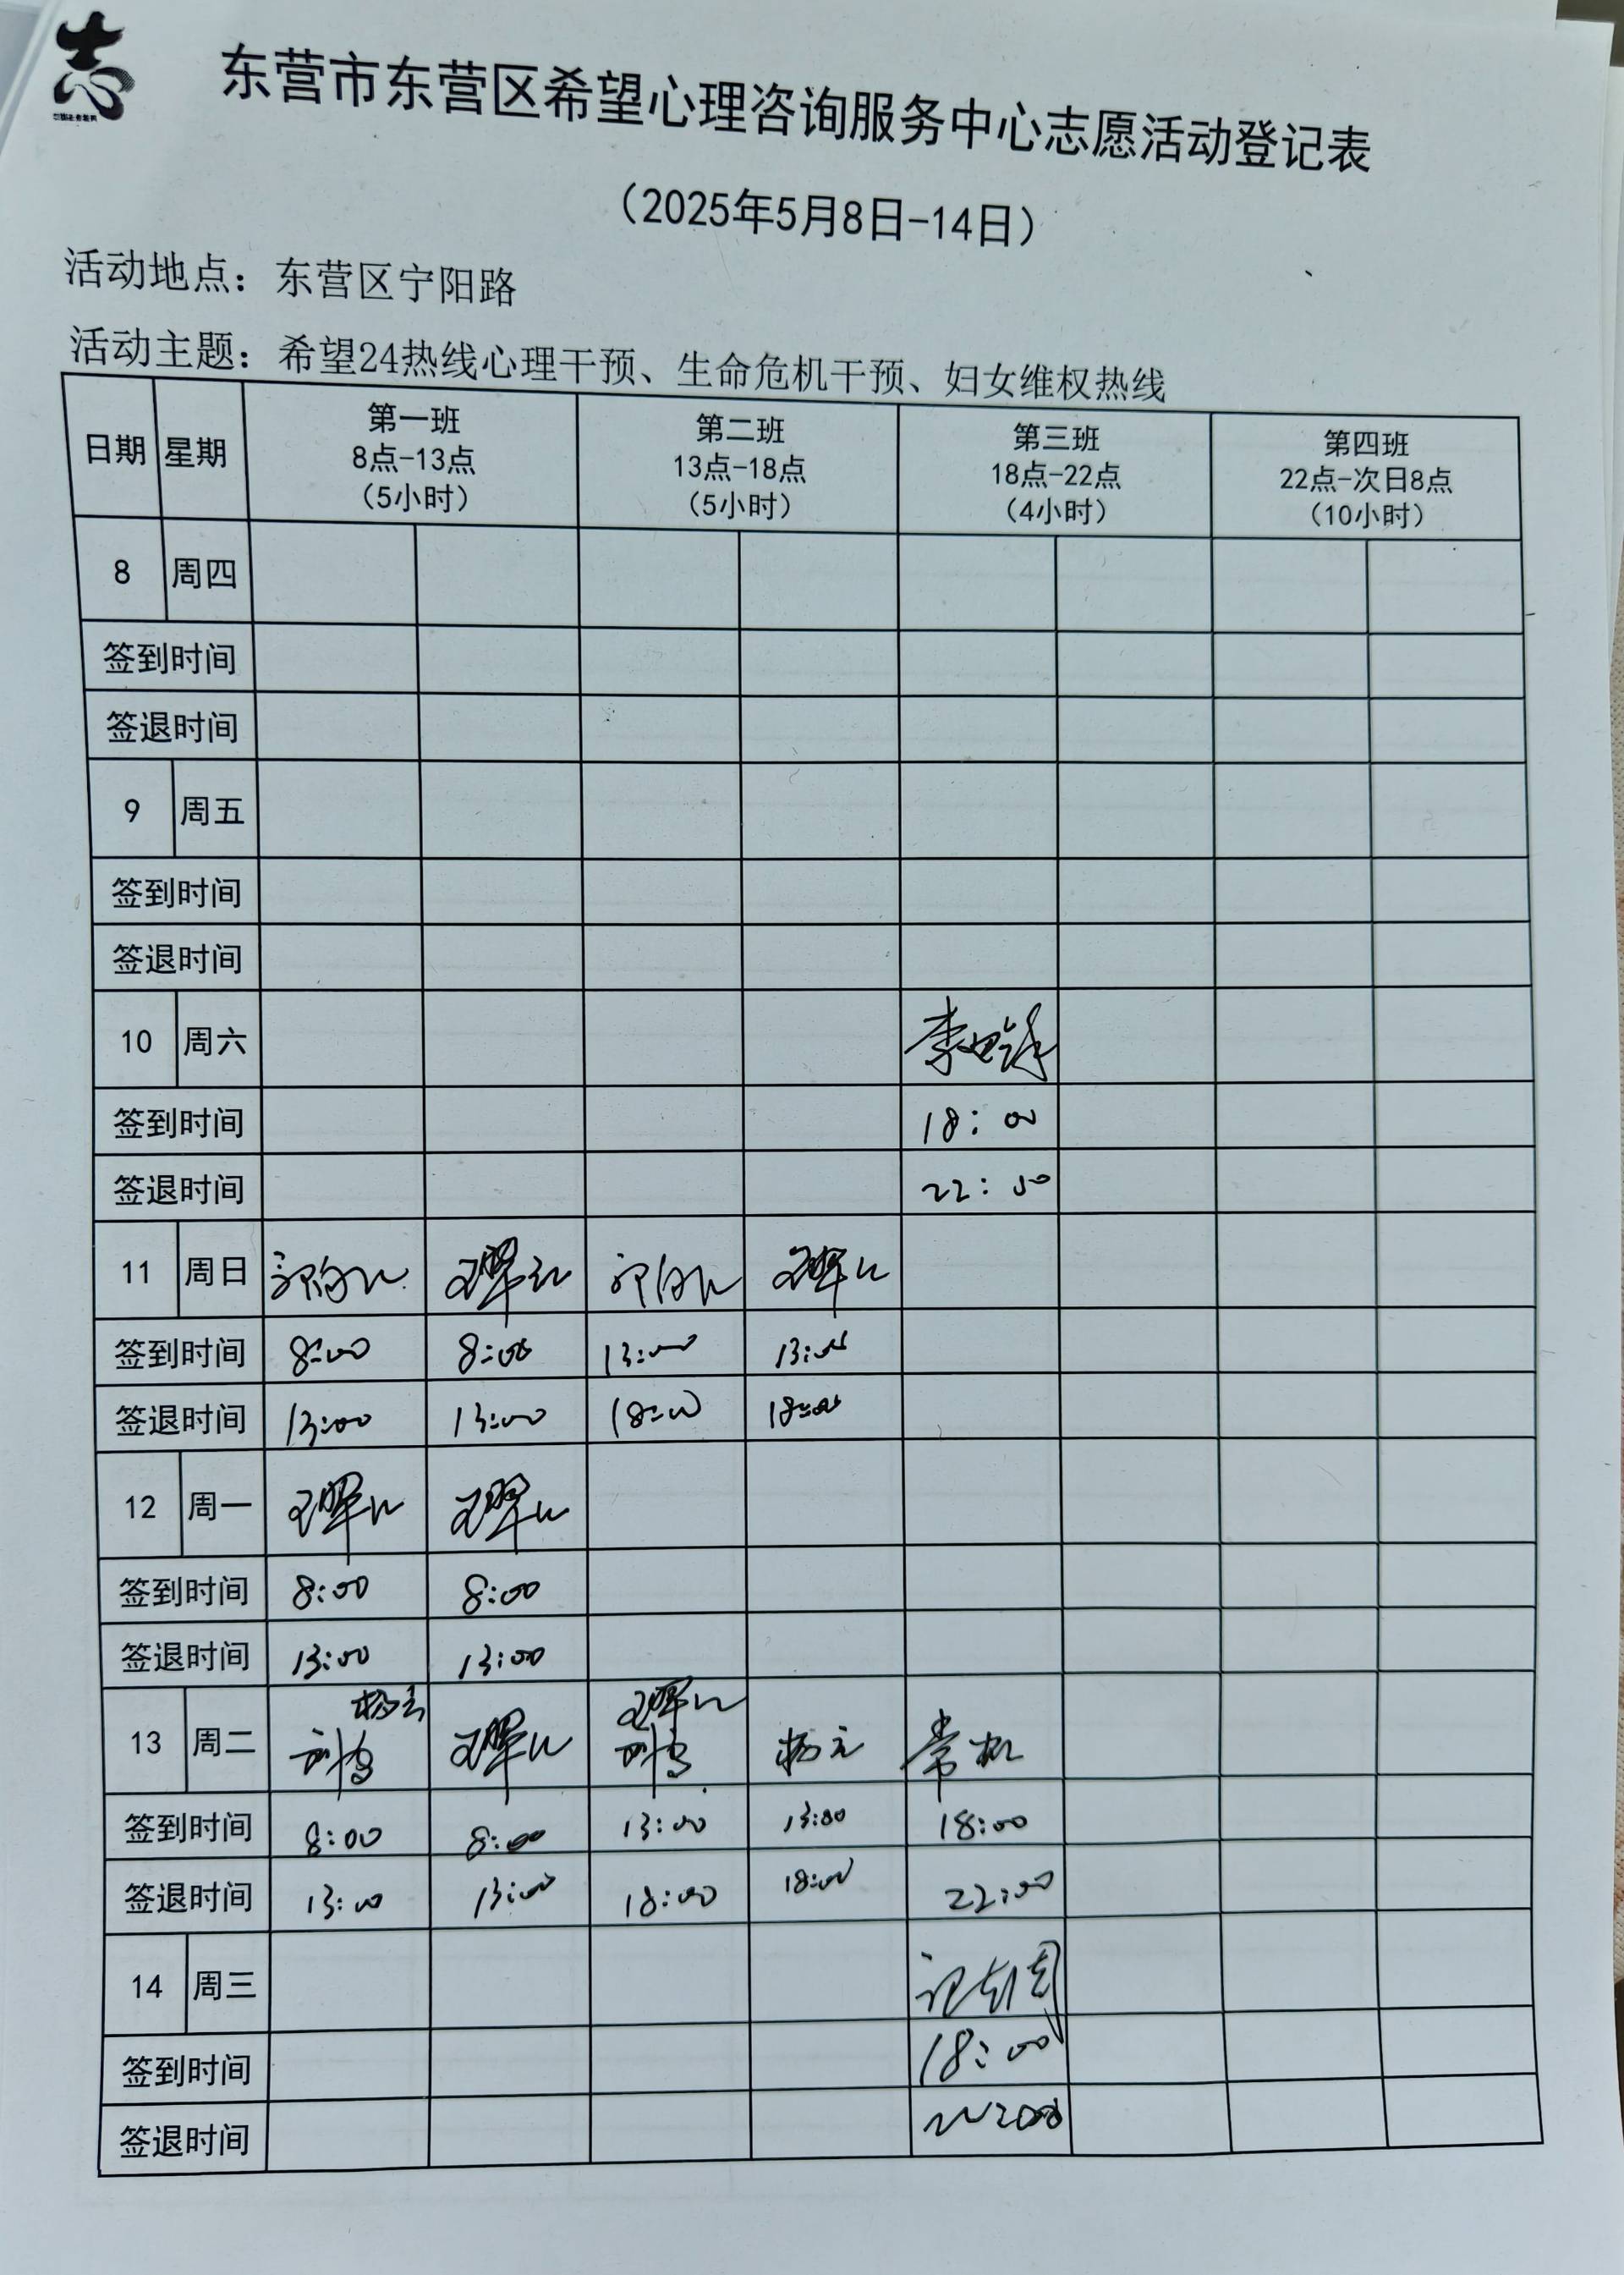 志
东营市东营区希望心理咨询服务中心志愿活动登记表
（2025年5月8日-14日）
活动地点：东营区宁阳路
活动主题：希望24热线心理干预、生命危机干预、妇女维权热线
日期 星期 第一班 8点-13点 （5小时） 第二班 13点-18点 （5小时） 第三班 18点-22点 （4小时） 第四班 22点-次日8点 （10小时）
8 周四
签到时间
签退时间
9 周五
签到时间
签退时间
10 周六 李
签到时间 18:00
签退时间 22:00
11 周日
签到时间 8:00 8:00 13:00 13:00
签退时间 13:00 13:00 18:00 18:00
12 周一
签到时间 8:00 8:00
签退时间 13:00 13:00
13 周二 杨元 常
签到时间 8:00 8:00 13:00 13:00 18:00
签退时间 13:00 13:00 18:00 18:00 22:00
14 周三
签到时间 18:00
签退时间